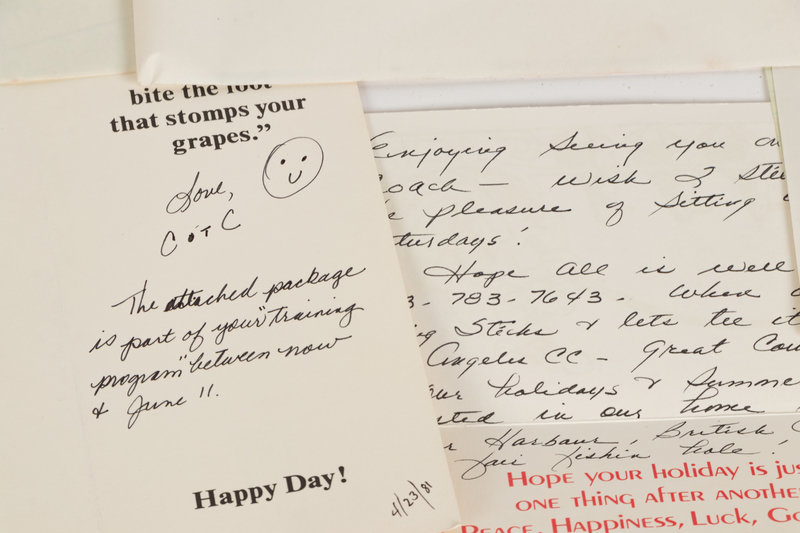 bite the foot
that stomps your
grapes.”
Love,
C o T C
The attached package
is part of your "training
program" between now
& June 11.
Happy Day!
4/23/81
Enjoying Seeing you on
Coach - wish I
pleasure of Sitting
turdays!
Hope All is well
3-783-7643 - When
Sticks & lets tee it
Angeles CC - Great Cou
holidays & Summe
in our home
Harbour, British
fishin hole!
Hope your holiday is jus
one thing after another
Peace, Happiness, Luck, Go